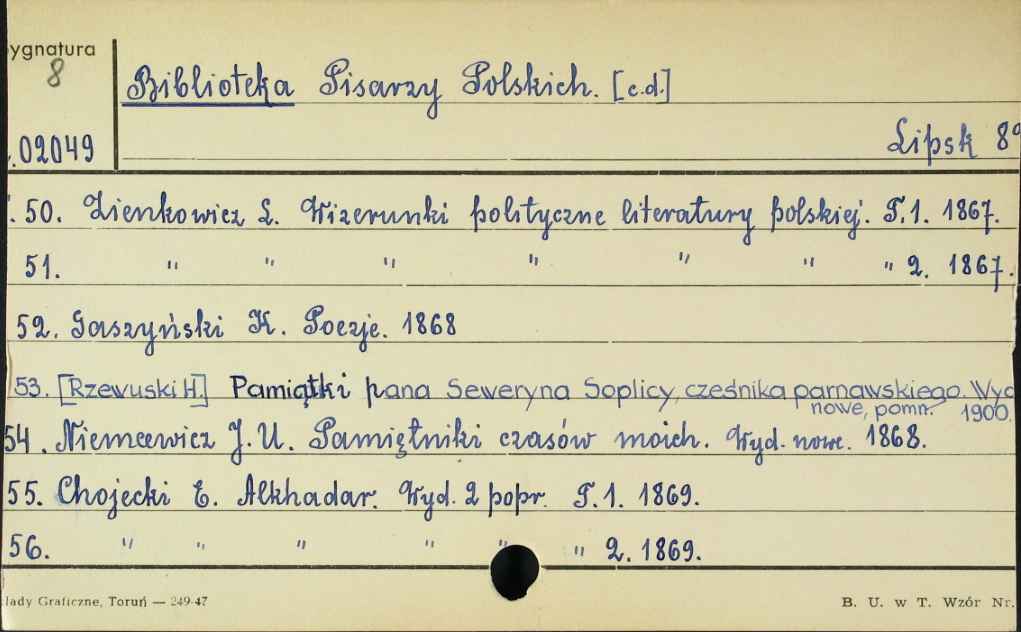 ygnatura
8
Biblioteka Pisarzy Polskich. [c.d.]
.02049
Lipsk 8°
50. Zienkowicz L. Wizerunki polityczne literatury polskiej. T.1. 1867.
51. " " " " " " " 2. 1867.
52. Gaszyński K. Poezje. 1868
53. [Rzewuski H.] Pamiątki pana Seweryna Soplicy, cześnika parnawskiego. Wyd
nowe, pomn. 1900.
54. Niemcewicz J. U. Pamiętniki czasów moich. Wyd. nowe. 1868.
55. Chojecki E. Alkhadar. Wyd. 2 popr. T.1. 1869.
56. " " " " " " 2. 1869.
łady Graficzne, Toruń — 249-47
B. U. w T. Wzór Nr.